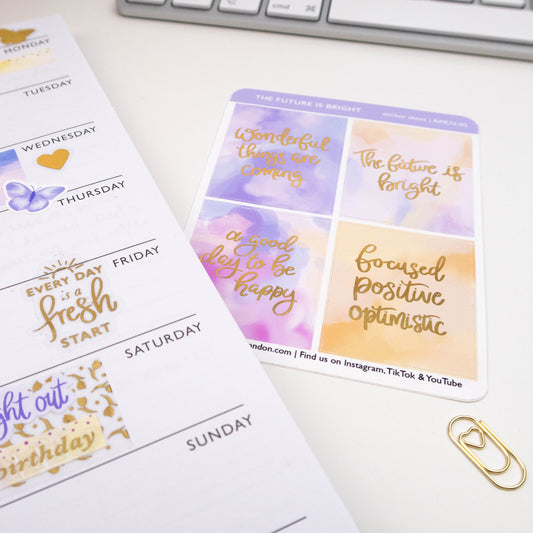 MONDAY
TUESDAY
WEDNESDAY
THURSDAY
FRIDAY
EVERY DAY
is a
fresh
START
SATURDAY
ght out
birthday
SUNDAY
THE FUTURE IS BRIGHT
Wonderful
things are
coming
The future is
bright
a good
day to be
happy
focused
positive
optimistic
ondon.com | Find us on Instagram, TikTok & YouTube
cmd